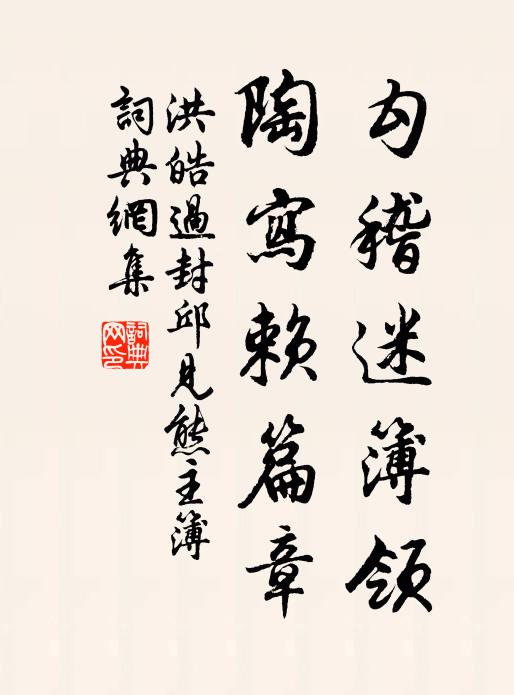 勾稽迷簿領
陶寫賴篇章
洪皓過封邱見熊主簿
詞典網集
詞典网印